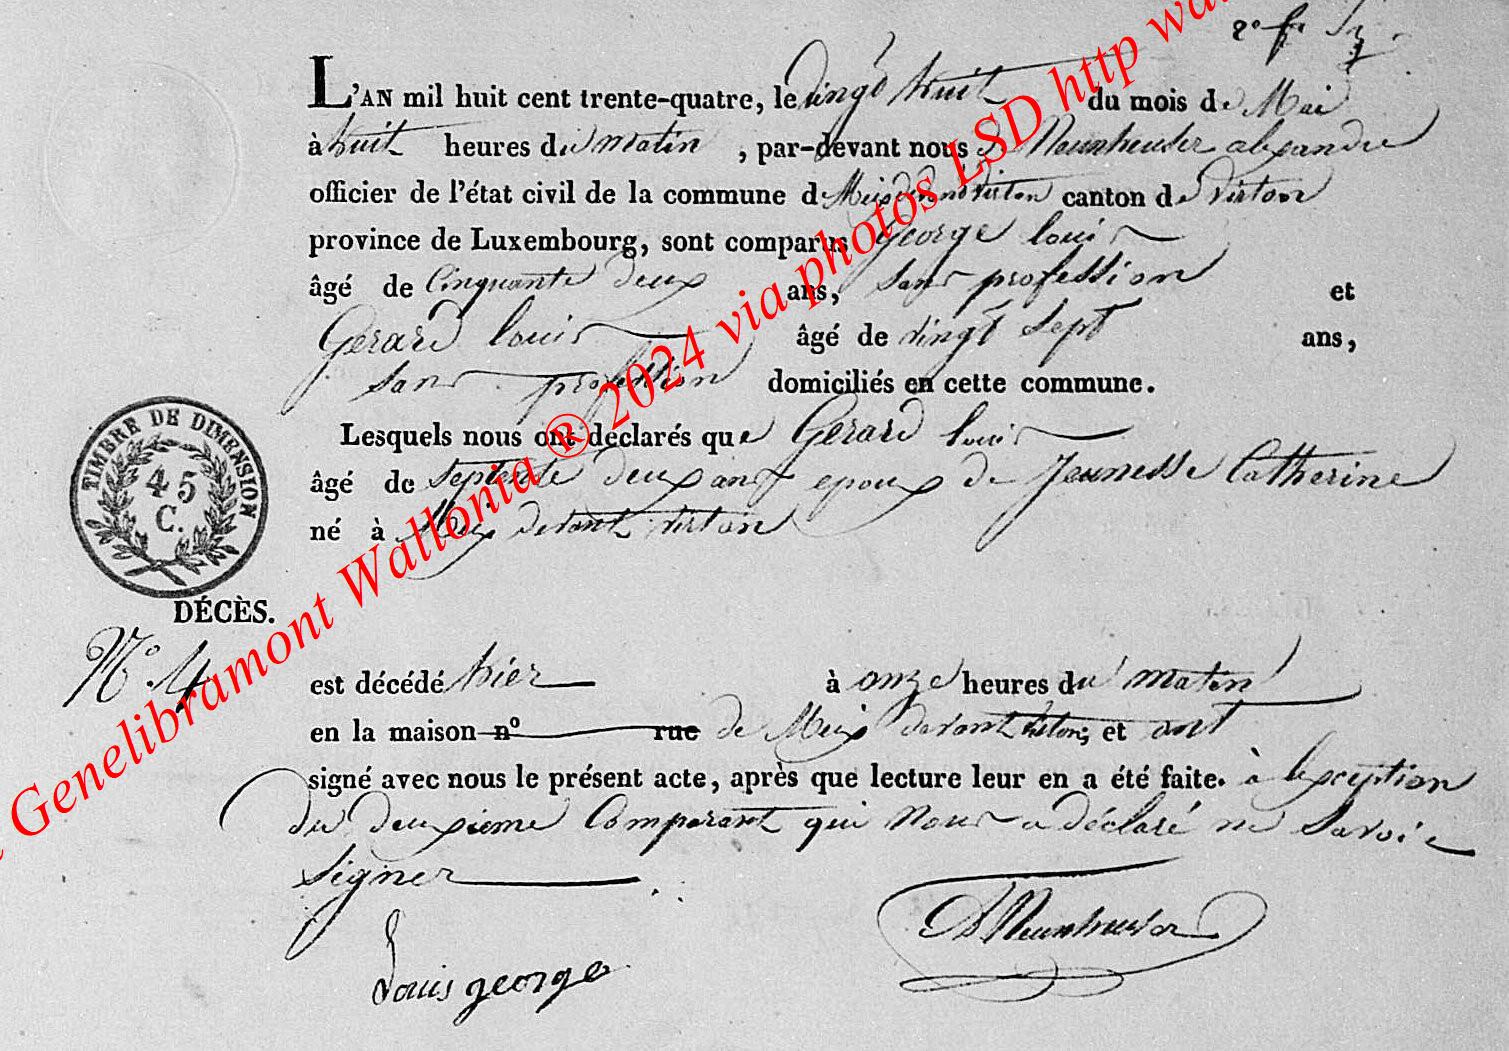 2e fe
L'AN mil huit cent trente-quatre, le vingt huit du mois de Mai
à huit heures du matin, par-devant nous de Neunheuser alexandre
officier de l'état civil de la commune de Meix devant virton canton de Virton
province de Luxembourg, sont comparus George louis
âgé de Cinquante deux ans, sans profession et
Gerard louis âgé de vingt sept ans,
sans profession domiciliés en cette commune.
Lesquels nous ont déclarés que Gerard louis
âgé de septente deux ans epoux de Jeunesse Catherine
né à Meix devant virton
TIMBRE DE DIMENSION
45
C.
DÉCÈS.
N° 4
est décédé hier à onze heures du matin
en la maison n° rue de Meix devant virton; et ont
signé avec nous le présent acte, après que lecture leur en a été faite. à lexception
du deuxieme Comparant qui nous a déclaré ne savoir
signer
Louis george
A Neunheuser
Genelibramont Wallonia ® 2024 via photos LSD http